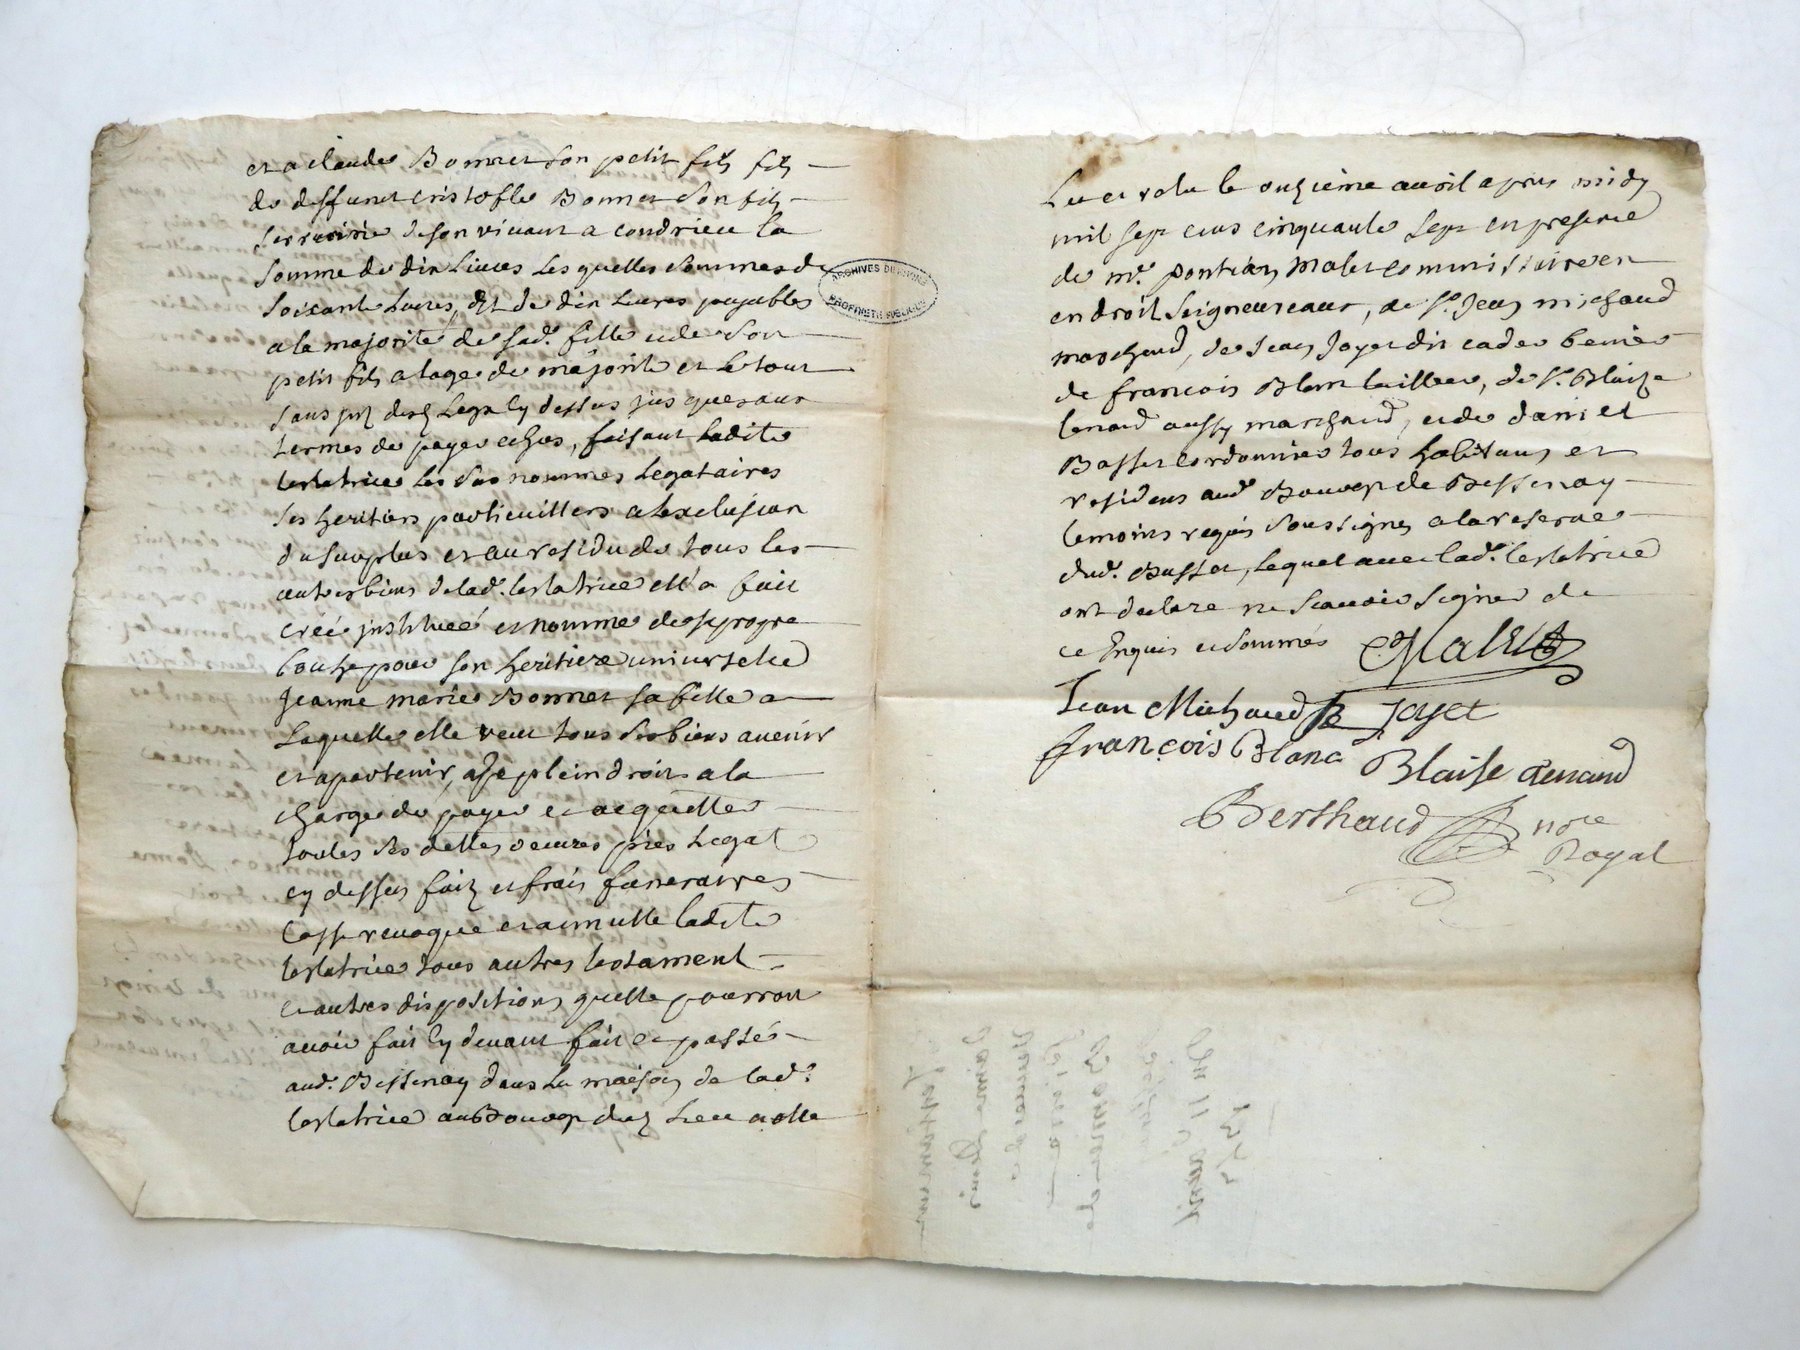 et a claude Bonnet son petit fils fils
de deffunct cristofle Bonnet son fils
serrurie de son vivant a condrieu la
somme de dix Livres Lesquelles sommes de
soixante Livres, et de dix Livres payables
a la majorité de sad. fille et de son
petit fils a lage de majorité et le tout
sans jusques aux
termes de payer echus, faisant ladite
testatrice Les sus nommes Legataires
ses heritiers particuilliers a lexclusion
du surplus et au residu de tous les
autres biens de lad. testatrice ell'a fait
créé instituéé et nomme de sa propre
bouche pour son heritiere universelle
Jeanne marie Bonnet sa fille a
Laquelle elle veut tous ses biens avenir
et apartenir, de plein droit a la
charge de payer et acquitter
toutes ses dettes oeuvres pies Legat
cy dessus faits et frais funeraires
Casse revoque et annulle ladite
testatrice tous autres testament
et autres dispositions quelle pourroit
avoir fait cy devant fait et passés
aud. Bessenay dans la maison de lad.
testatrice au Bourg dud Lieu a elle
ARCHIVES DU RHONE
PROPRIÉTÉ PUBLIQUE
Lu et relu le onzieme avril apres midy
mil sept cens cinquante sept en presence
de me. pontian malet commissaire en
en droit Seigneureaux, de sr. Jean michaud
marchand, de Jean Joyet dit cadet
de francois Blanc tailleur, de sr. Blaize
renard aussy marchand, et de daniel
Basset cordonnier tous habitans et
residens aud. Bourg de Bessenay
temoins requis soussignes a la reserve
dud. Basset, lequel avec lad. testatrice
ont declare ne scavoir signer de
ce Enquis et sommés Malet
Jean Michaud Joyet
françois Blanc Blaise Renard
Berthaud nore
Royal